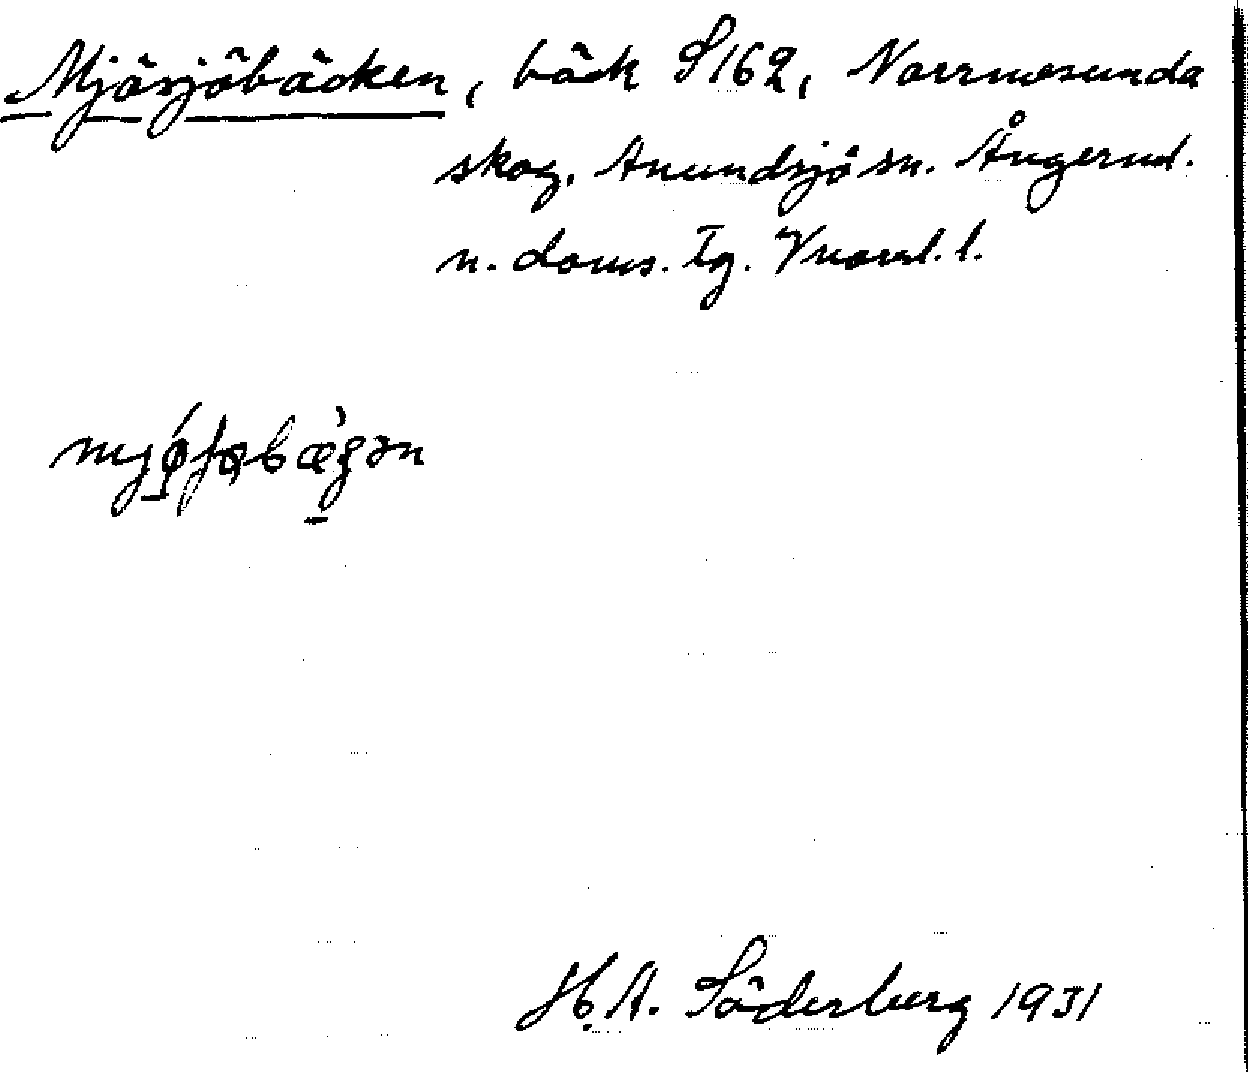 Mjösjöbäcken, bäck S162, Norrmesunda
skog, Anundsjö sn. Ångerml.
n. doms. tg. Vnorrl. l.
H. A. Söderberg 1931